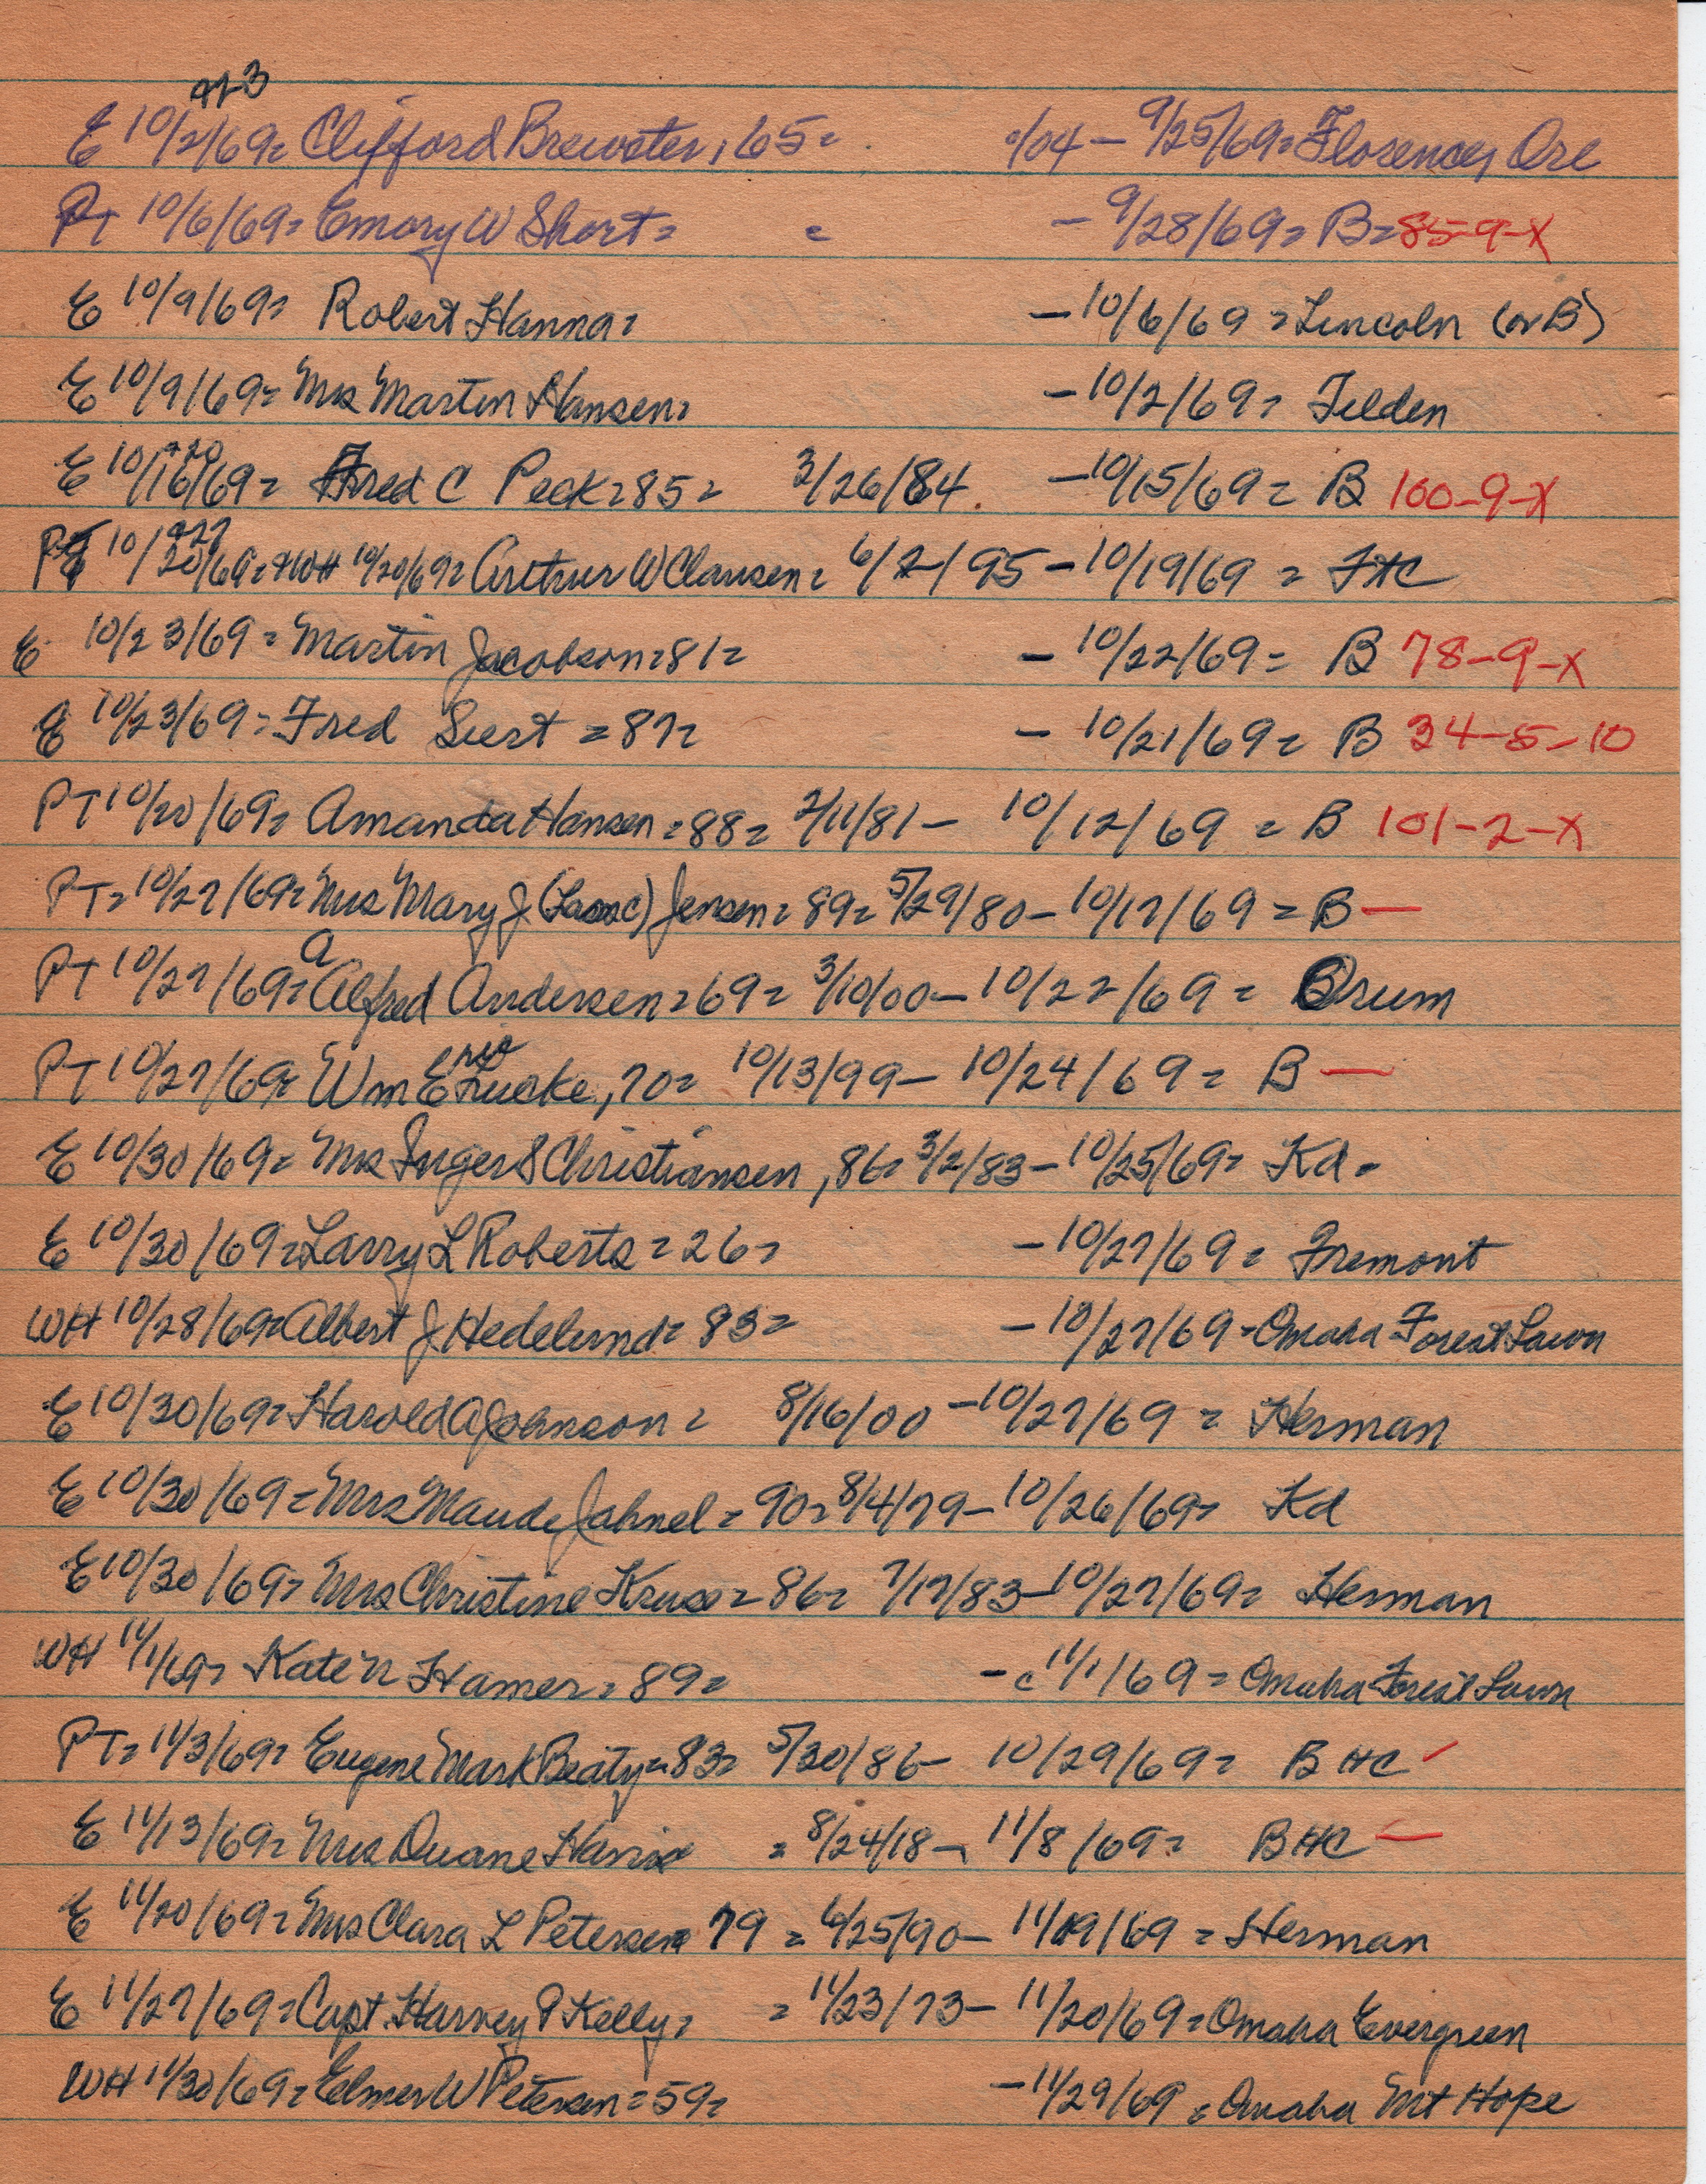 943
E 10/2/69= Clifford Brewster, 65= /04 - 9/25/69= Florence, Ore
PT 10/6/69= Emory W Short= = - 9/28/69= B= 85-9-X
E 10/9/69= Robert Hanna= - 10/6/69 = Lincoln (or B)
E 10/9/69= Mrs Martin Hansen= - 10/2/69= Tilden
E 10/16/69= Fred C Peck=85= 3/26/84 - 10/15/69= B 100-9-X
PT 10/20/69= + WH 10/20/69= Arthur W Clausen= 6/2/95 - 10/19/69 = FHC
E 10/23/69= Martin Jacobson=81= - 10/22/69= B 78-9-X
E 10/23/69= Fred Siert =87= - 10/21/69= B 34-5-10
PT 10/20/69= Amanda Hansen=88= 2/11/81 - 10/12/69 = B 101-2-X
PT= 10/27/69= Mrs Mary J. (Isaac) Jensen= 89= 5/29/80 - 10/17/69 = B —
a
PT 10/27/69= Alfred Andersen=69= 3/10/00 - 10/22/69 = Orum
PT 10/27/69= Wm E Frucke, 70= 10/13/99 - 10/24/69 = B —
E 10/30/69= Mrs Inger S Christiansen, 86= 3/2/83 - 10/25/69= Kd=
E 10/30/69= Larry L Roberts = 26= - 10/27/69 = Fremont
WH 10/28/69= Albert J Hedelund= 83= - 10/27/69 - Omaha Forest Lawn
E 10/30/69= Harold A Johnson = 8/16/00 - 10/27/69 = Herman
E 10/30/69= Mrs Maude Jahnel = 90= 8/4/79 - 10/26/69= Kd
E 10/30/69= Mrs Christine Kruse = 86= 7/17/83 - 10/27/69= Herman
WH 11/1/69= Kate N Hamer= 89= - c 11/1/69 = Omaha Forest Lawn
PT= 11/3/69= Eugene Mark Beaty=83= 5/30/86 - 10/29/69= B HC —
E 11/13/69= Mrs Duane Harris = 8/24/18 - 11/8/69= B HC —
E 11/20/69= Mrs Clara L Petersen= 79 = 6/25/90 - 11/19/69 = Herman
E 11/27/69= Capt. Harvey P Kelly= = 11/23/73 - 11/20/69= Omaha Evergreen
WH 11/30/69= Elmer W Petersen=59= - 11/29/69 = Omaha Mt Hope